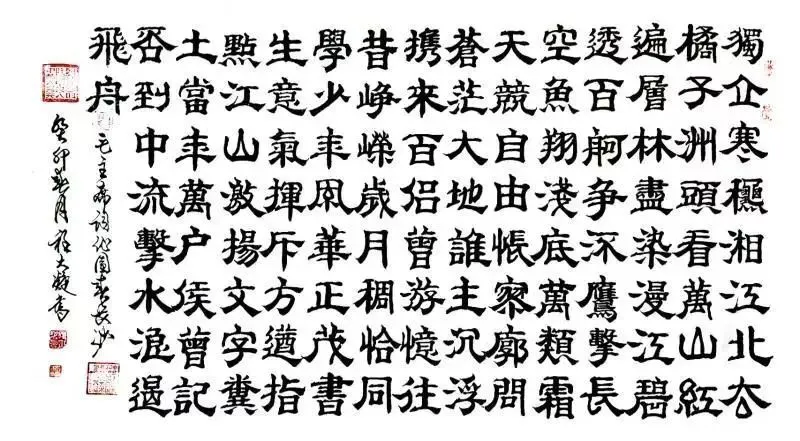 獨立寒穐湘江北去
橘子洲頭看萬山紅
遍層林盡染漫江碧
透百舸争流鷹擊長
空魚翔淺底萬類霜
天競自由悵寥廓問
蒼茫大地誰主沉浮
携來百侣曾游憶往
昔崢嶸歲月稠恰同
學少年風華正茂書
生意氣揮斥方遒指
點江山激揚文字糞
土當年萬户侯曾記
否到中流擊水浪遏
飛舟
毛主席詞沁園春長沙
癸卯春月大書